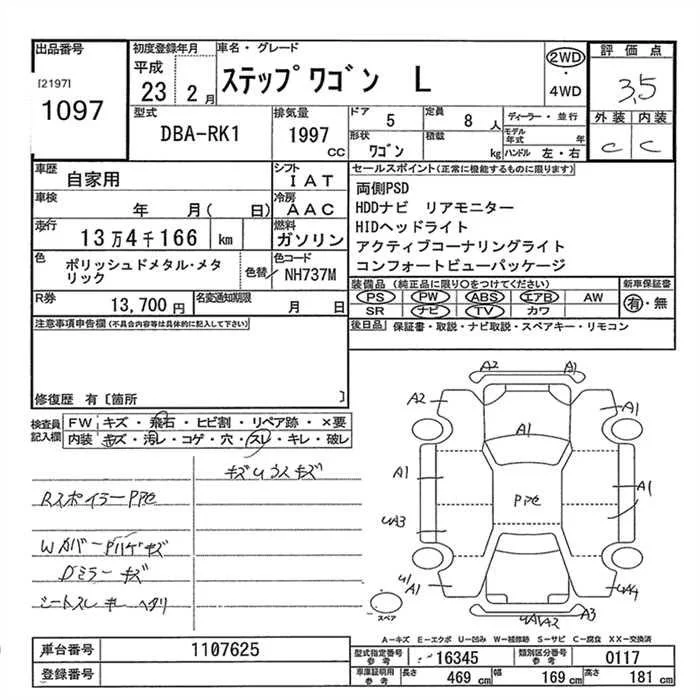 出品番号
[2197]
1097
初度登録年月
平成
23 2 月
車名・グレード
ステップワゴン L
2WD
・
4WD
評価点
3.5
外装 内装
C C
型式
DBA-RK1
排気量
1997
CC
ドア
5
定員
8 人
形状
ワゴン
積載
kg
ディーラー・並行
モデル年式 年
ハンドル 左・右
車歴
自家用
シフト
IAT
車検
年 月( 日)
冷房
AAC
走行
13万4千166 km
燃料
ガソリン
色
ポリッシュドメタル・メタリック
色替
カラーコード
NH737M
R券
13,700 円
名変通知期限
月 日
セールスポイント(正常に機能するものに限ります)
両側PSD
HDDナビ リアモニター
HIDヘッドライト
アクティブコーナリングライト
コンフォートビューパッケージ
装備品 (純正品に限り○をつけてください)
PS PW ABS エアB AW
SR ナビ TV カワ
新車保証書
有・無
後日品 保証書・取説・ナビ取説・スペアキー・リモコン
注意事項申告欄(不具合内容等は具体的に記入して下さい)
修復歴 有〔箇所 〕
検査員
記入欄
FW キズ・飛石・ヒビ割・リペア跡・×要
内装 キズ・汚レ・コゲ・穴・スレ・キレ・破レ
RスポイラーPヤセ
WカバーPハゲキズ
Dミラーキズ
A2 A1
A2
A1
A1
A1
A1
Pヤセ
A3
A1
A2
A3
スペア
A-キズ E-エクボ U-凹み W-補修跡 S-サビ C-腐食 XX-交換済
車台番号
1107625
登録番号
型式指定番号
参考
16345
類別区分番号
参考
0117
車庫証明用
参考
長さ 469 cm 幅 169 cm 高さ 181 cm